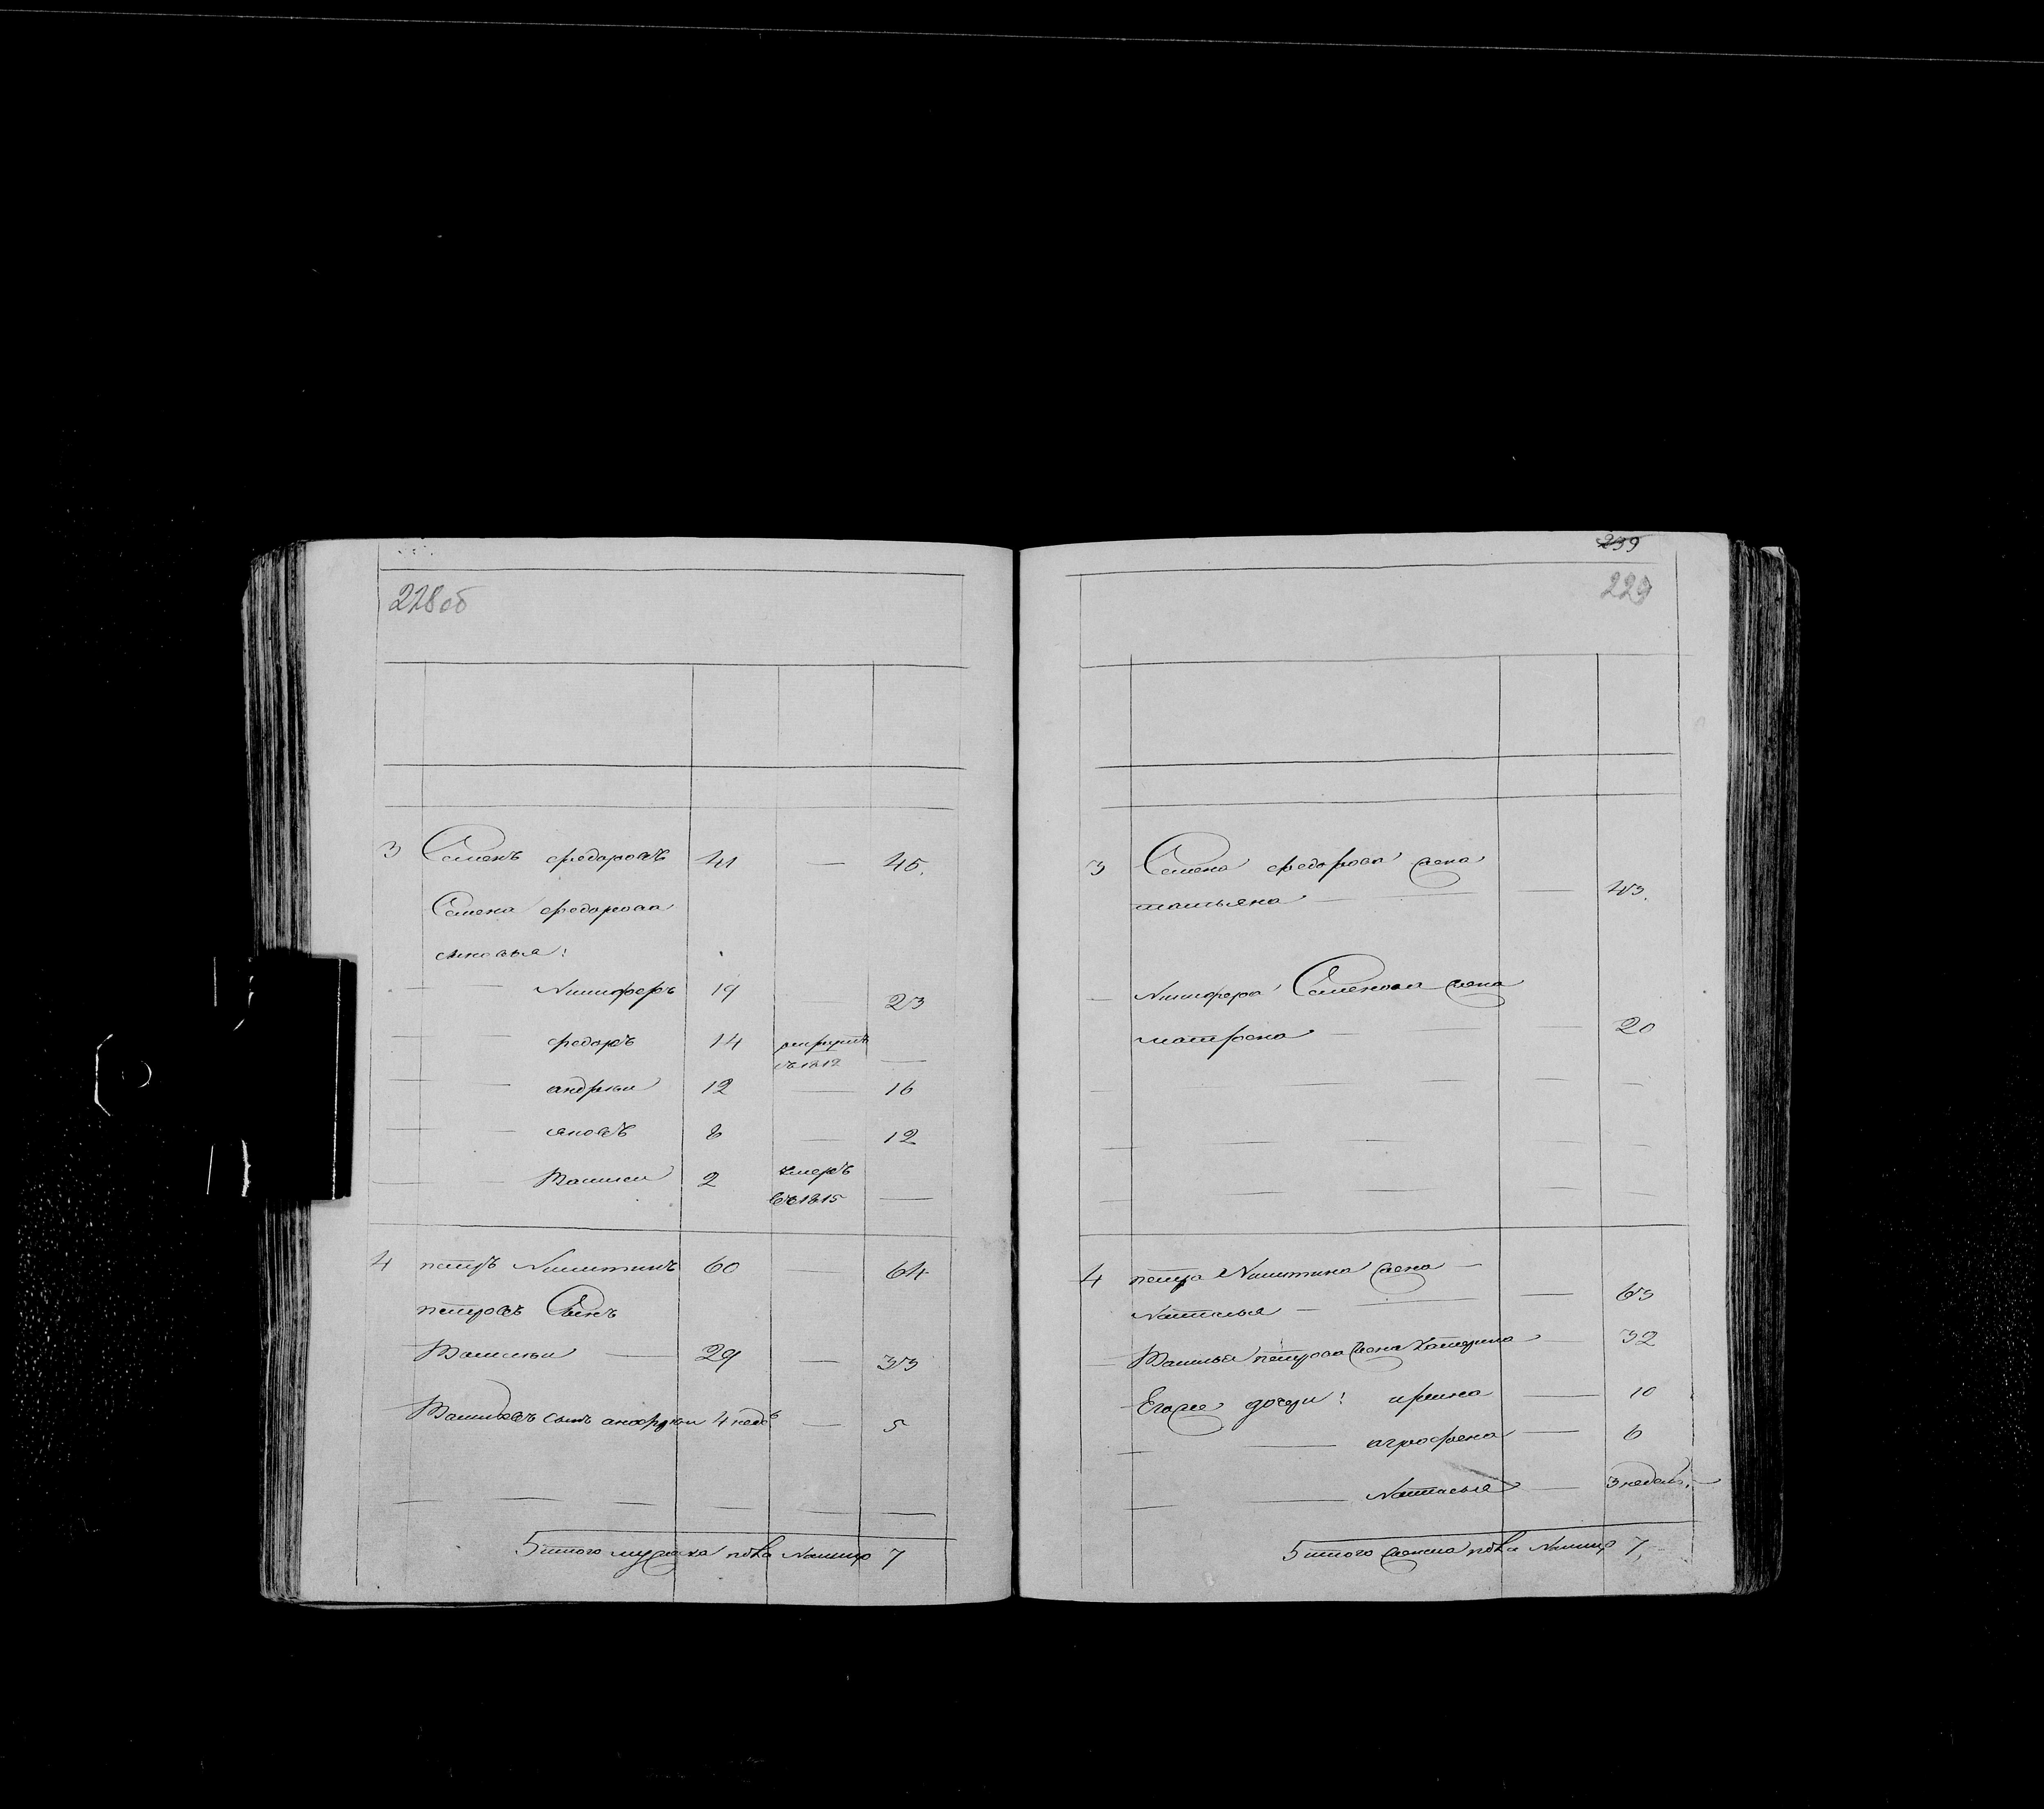 228 об
3 Семенъ федоровъ 41 — 45.
Семена федорова
сыновья:
— — Никифоръ 19 — 23
— — федоръ 14 рекрутъ
въ 1812 —
— — андреи 12 — 16
— — яковъ 8 — 12
— — Василеи 2 умеръ
въ 1815 —
4 петръ Никитинъ 60 — 64
петровъ Сынъ
Василеи — 29 — 33
Васильевъ сынъ андреи 4 недѣ — 5
5 итого мужеска пола На лицо 7
239
229
3 Семена федорова жена
татьяна — — 43.
— Никифора Семенова жена
матрена — — 20
4 петра Никитина жена —
Наталья — — 63
— Василья петрова жена Катерина — 32
Егоже дочери: ирина — 10
— — аграфена — 6
— — Наталья — 3 недель.
5 итого женска пола На лицо 7.